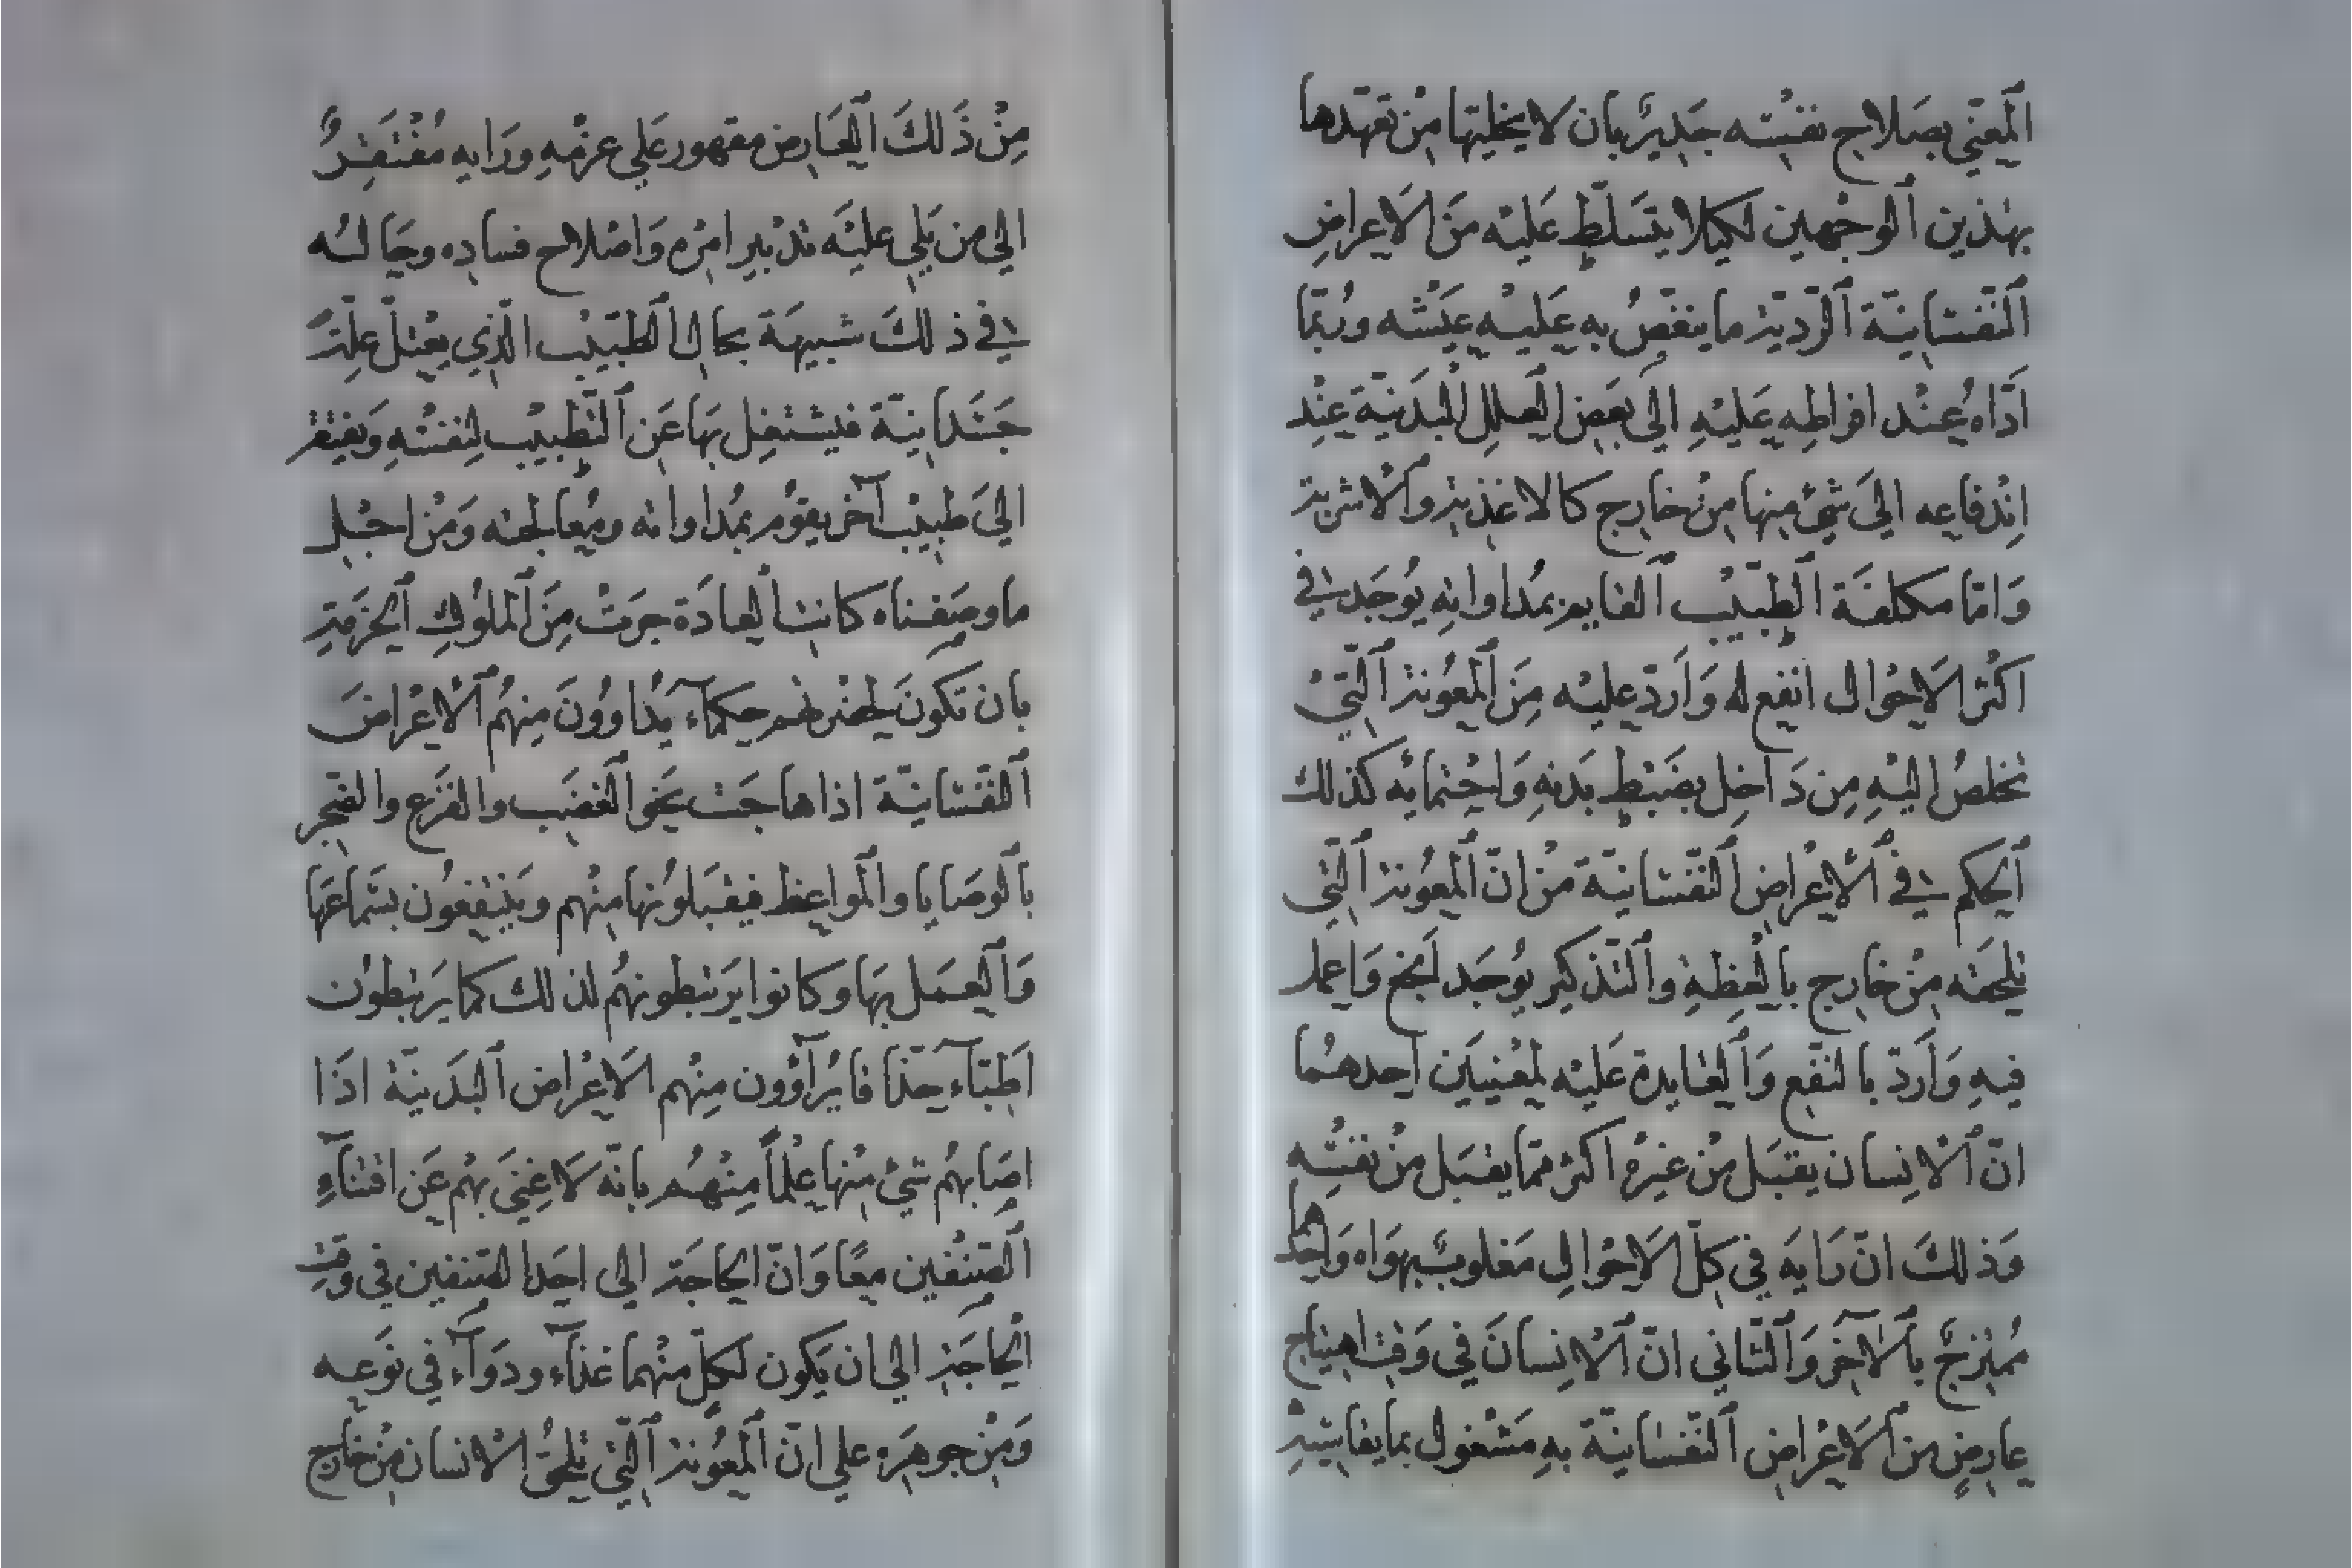 المعني بصلاح نفسه جدير بان لا يخليها من تعهدها
بهذين الوجهين لكيلا يتسلط عليه من الاعراض
النفسانية الردية ما ينغص به عليه عيشه وربما
اداه عند افراطه عليه الى بعض العلل البدنية عند
اندفاعه الى شئ منها من خارج كالاغذية والاشربة
واما مكلفة الطبيب القايم بمداواته يوجد في
اكثر الاحوال انفع له وارد عليه من المعونة التي
تخلص اليه من داخل بضبط بدنه واحتمايه كذلك
الحكم في الاعراض النفسانية من ان المعونة التي
تلحقه من خارج بالعظة والتذكير يوجد انجع واعمل
فيه وارد بالنفع والعايدة عليه لمعنيين احدهما
ان الانسان يقبل من غيره اكثر مما يقبل من نفسه
وذلك ان رايه في كل الاحوال مغلوب بهواه واحدهما
ممتزج بالاخر والثاني ان الانسان في وقت اهتياج
عارض من الاعراض النفسانية به مشغول بما يقاسيه
من ذلك العارض مقهور على عزمه ورايه مفتقر
الي من يلي عليه تدبير امره واصلاح فساده وحاله
في ذلك شبيهة بحال الطبيب الذي يعتل علة
جسدانية فيشتغل بها عن التطبيب لنفسه ويفتقر
الى طبيب آخر يقوم بمداواته ومعالجته ومن اجل
ما وصفناه كانت العادة جرت من الملوك الحزمة
بان تكون بحضرتهم حكماء يداوون منهم الاعراض
النفسانية اذا هاجت نحو الغضب والفزع والضجر
بالوصايا والمواعظ فيقبلونها منهم وينتفعون بسماعها
والعمل بها وكانوا يرتبطونهم لذلك كما يرتبطون
اطباء حذاقا يبرأوون منهم الاعراض البدنية اذا
اصابهم شئ منها علما منهم بانه لا غنى بهم عن اقتناء
الصنفين معا وان الحاجة الى احد الصنفين في وقت
الحاجة الي ان يكون لكل منهما غذاء ودواء في نوعه
ومن جوهره علي ان المعونة التي تلحق الانسان من خارج